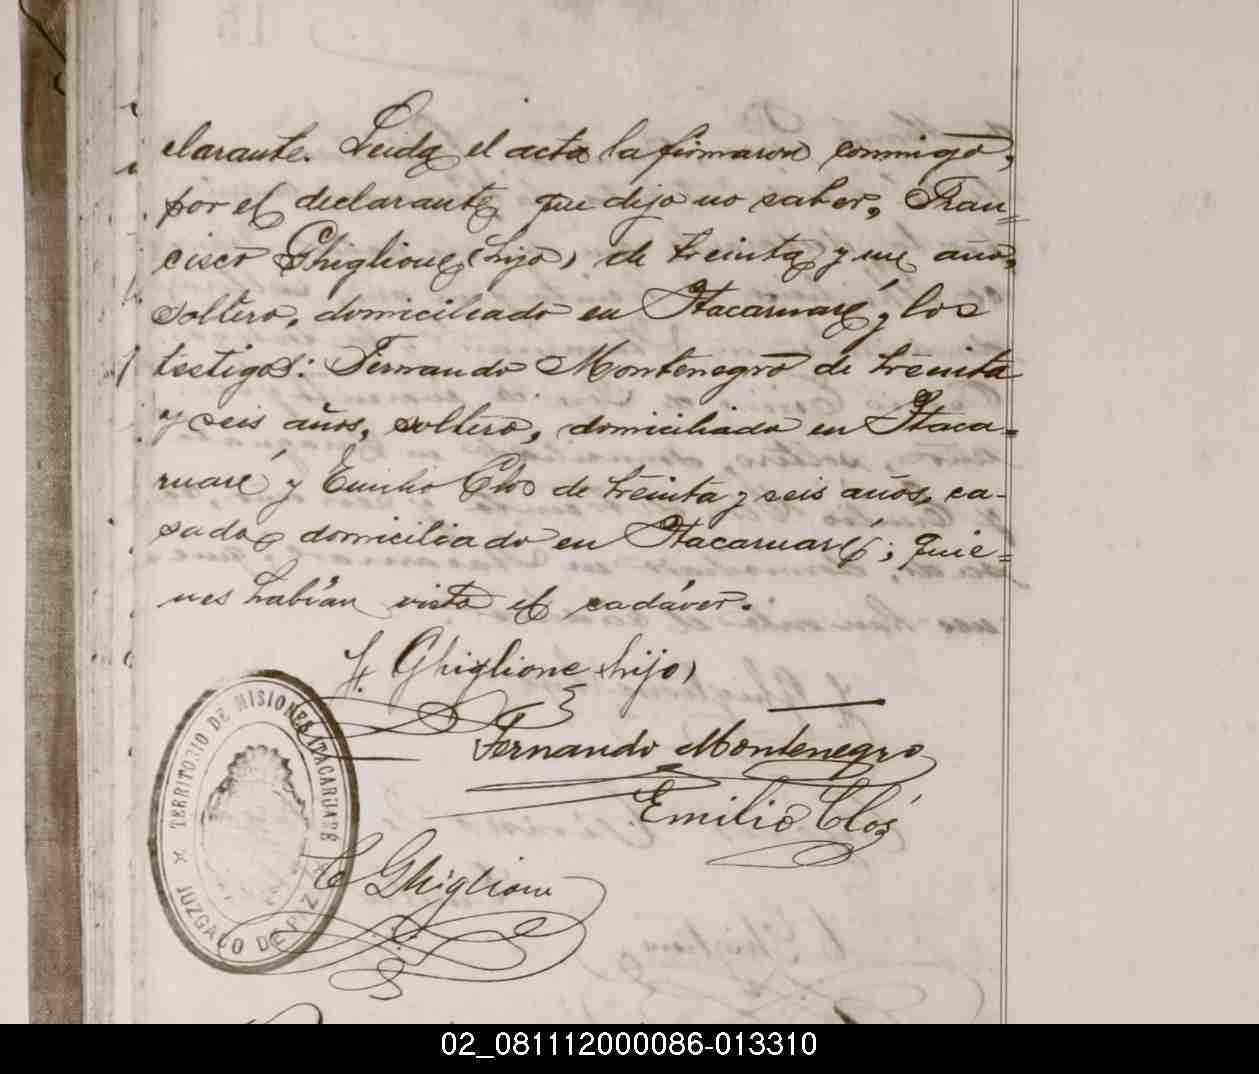 clarante. Leida el acta la firmaron conmigo,
por el declarante que dijo no saber, Fran=
cisco Ghiglione (hijo) de treinta y un años,
soltero, domiciliado en Itacaruaré, y los
testigos: Fernando Montenegro de treinta
y seis años, soltero, domiciliado en Itaca=
ruaré y Emilio Clos de treinta y seis años, ca-
sado, domiciliado en Itacaruaré; quie=
nes habían visto el cadáver.
F. Ghiglione (hijo)
Fernando Montenegro
Emilio Clos
TERRITORIO DE MISIONES ITACARUARÉ
JUZGADO DE PAZ
C Ghiglione
02_081112000086-013310